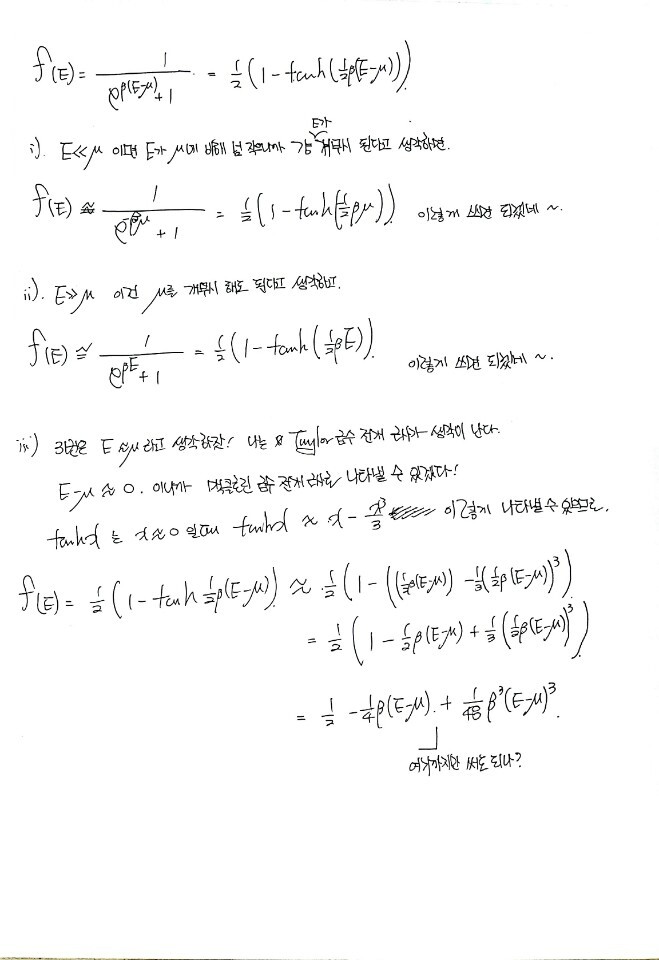 f(E) = 1/(e^{β(E-μ)}+1) = 1/2 (1 - tanh(1/2 β(E-μ)))
E가
i). E≪μ 이면 E가 μ에 비해 넘 작으니까 걍 개무시 된다고 생각하면.
f(E) ≈ 1/(e^{-βμ}+1) = 1/2 (1 - tanh(-1/2 βμ)) 이렇게 쓰면 되겠네 ~.
ii). E≫μ 이건 μ를 개무시 해도 된다고 생각하고.
f(E) ≅ 1/(e^{βE}+1) = 1/2 (1 - tanh(1/2 βE)). 이렇게 쓰면 되겠네 ~.
iii) E≈μ 라고 생각하잔! 나는 Taylor 급수 전개 근사가 생각이 난다.
E-μ ≈ 0. 이니까 맥클로린 급수 전개 근사로 나타낼 수 있겠다!
tanh x 는 x≈0 일때 tanh x ≈ x - x³/3 이렇게 나타낼 수 있으므로.
f(E) = 1/2 (1 - tanh 1/2 β(E-μ)) ≈ 1/2 (1 - ((1/2 β(E-μ)) - 1/3 (1/2 β(E-μ))³)
= 1/2 (1 - 1/2 β(E-μ) + 1/3 (1/2 β(E-μ))³)
= 1/2 - 1/4 β(E-μ). + 1/48 β³(E-μ)³.
여기까지만 써도 되나?